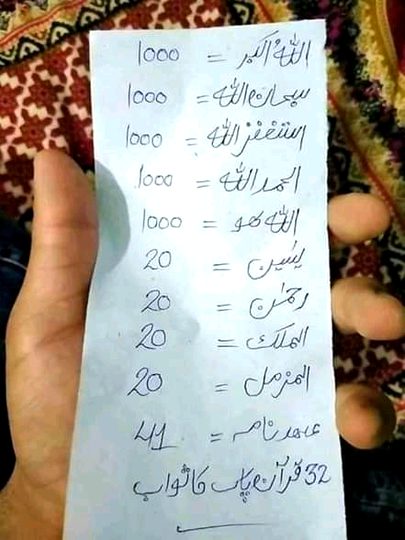 اللہ اکبر = 1000
سبحان اللہ = 1000
استغفر اللہ = 1000
الحمد اللہ = 1000
اللہ ھو = 1000
یٰسین = 20
رحمٰن = 20
الملک = 20
المزمل = 20
عہد نامہ = 41
32 قرآن پاک کا ثواب